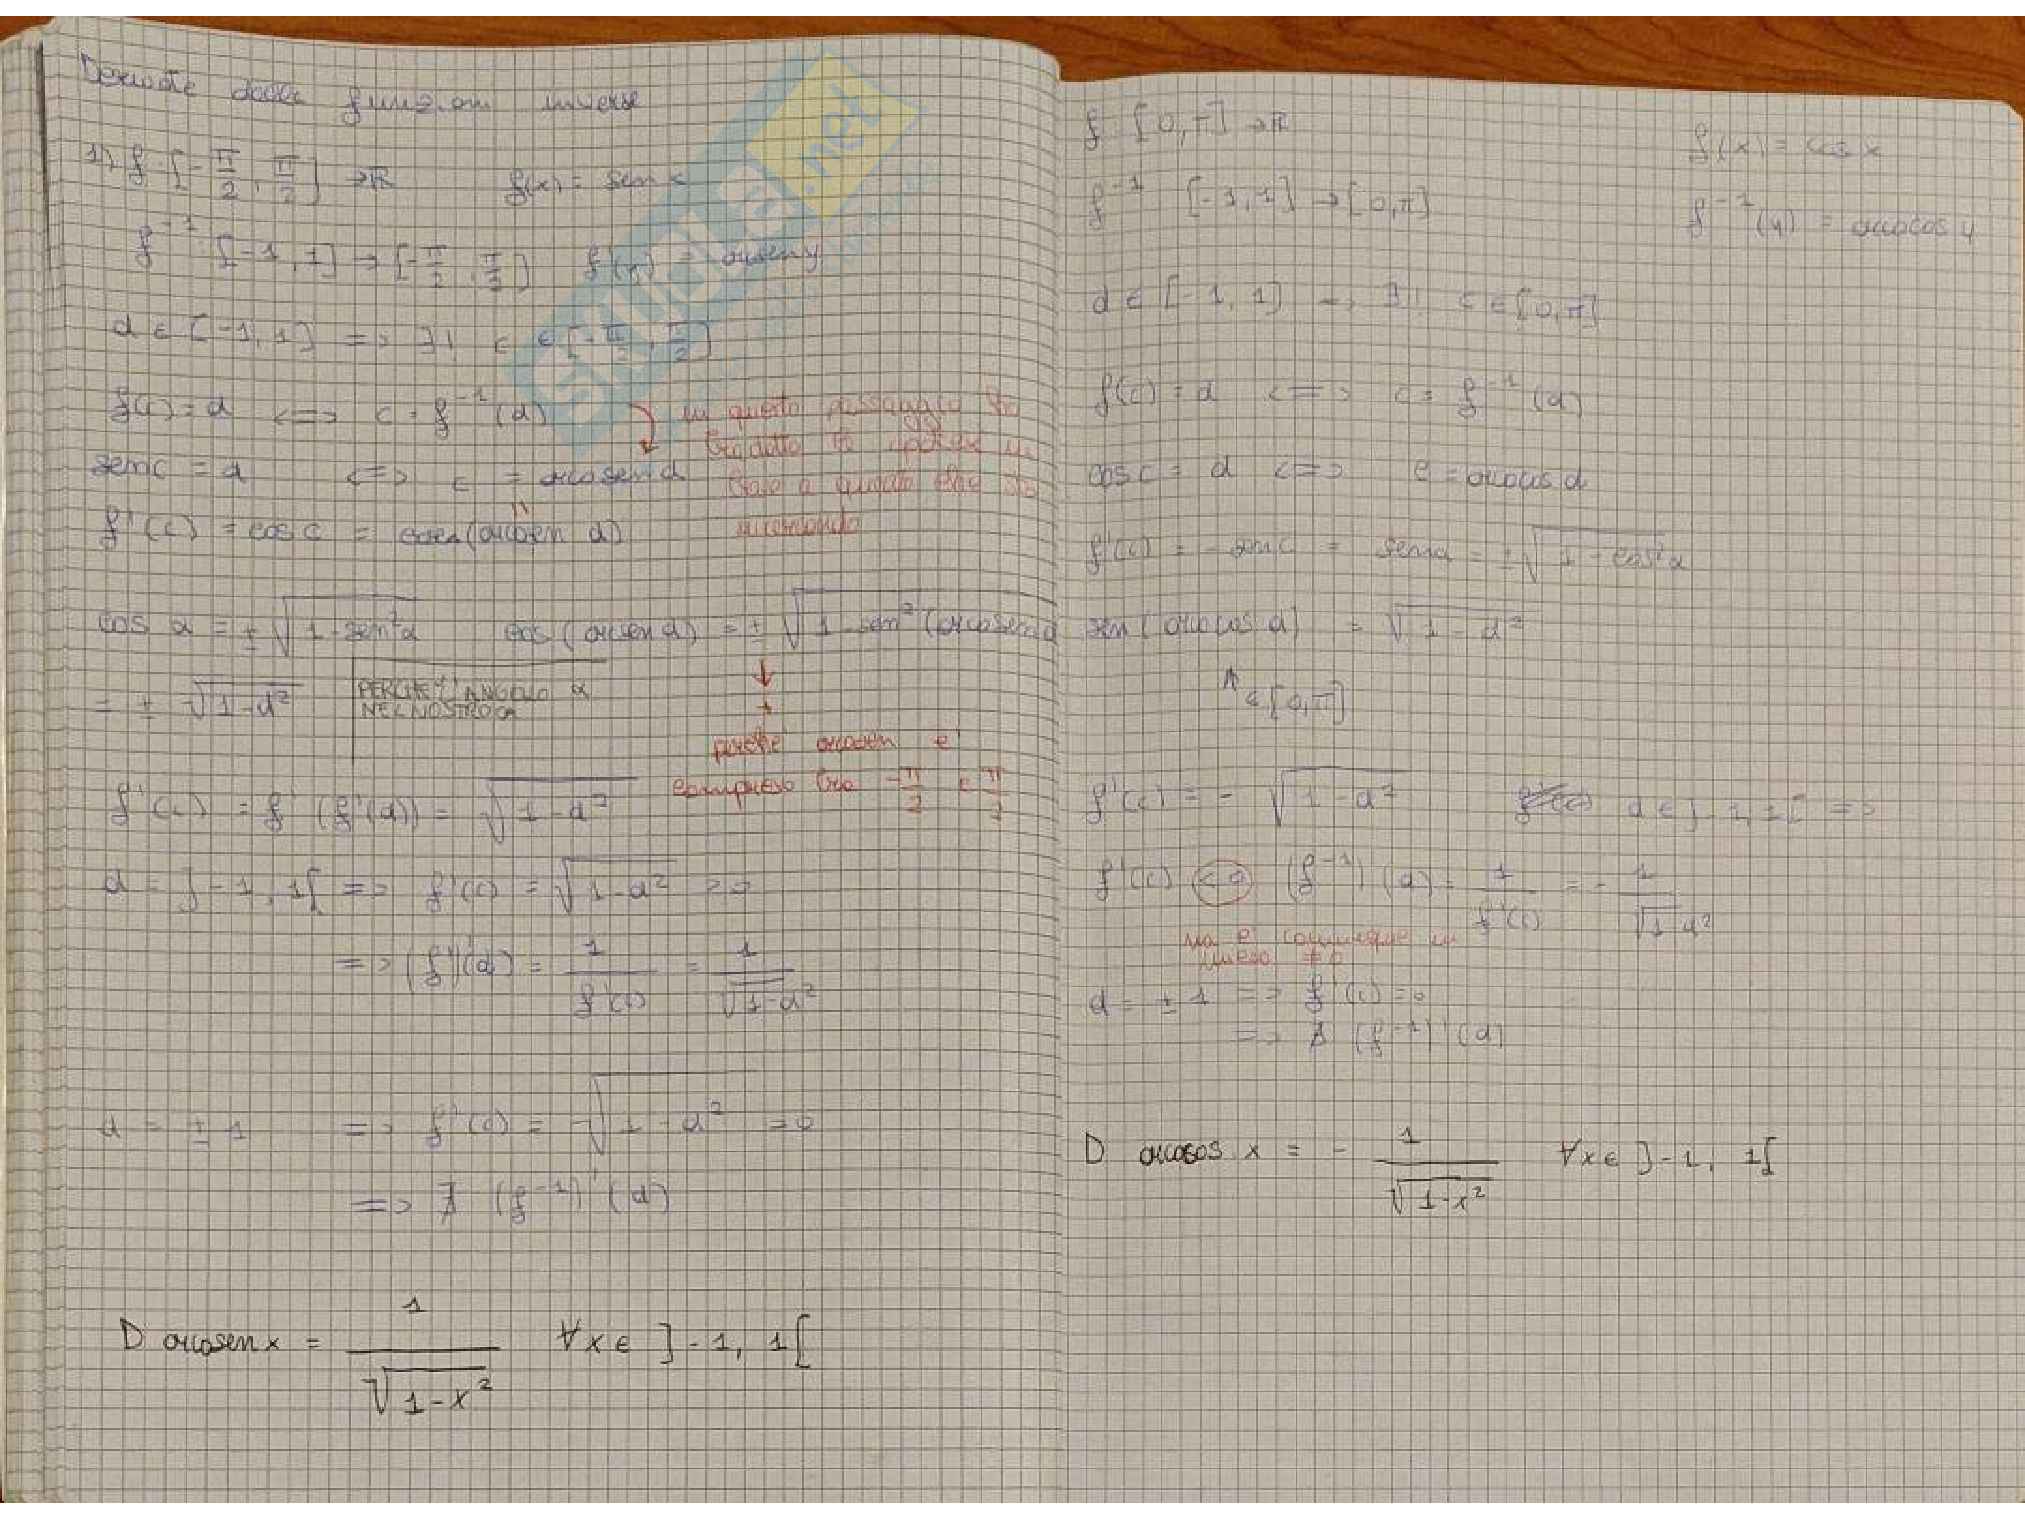 Derivate delle funzioni inverse
1) f: [-π/2, π/2] → ℝ f(x) = sen x
f⁻¹: [-1, 1] → [-π/2, π/2] f⁻¹(y) = arcsen y
d ∈ [-1, 1] => ∃! c ∈ [-π/2, π/2]
f(c) = d <=> c = f⁻¹(d) in questo passaggio ho
tradotto le
sen c = d <=> c = arcosen d base a quello che sto
f'(c) = cos c = (arcosen d) ricercando
cos α = ± √(1 - sen²α) cos (arcsen d) = ± √(1 - sen²(arcosen d
= ± √(1-d²) PERCHE' L'ANGOLO α
NEL NOSTRO
+
perché arcosen è
compreso tra -π/2 e π/2
f'(c) = f'(f'(d)) = √(1-d²)
d = ]-1, 1[ => f'(c) = √(1-d²) > 0
=> (f')'(d) = 1/f'(c) = 1/√(1-d²)
d = ± 1 => f'(c) = √(1-d²) = 0
=> ∄ (f⁻¹)'(d)
D arcosen x = 1/√(1-x²) ∀x ∈ ]-1, 1[
f: [0, π] → ℝ f(x) = cos x
f⁻¹ [-1, 1] → [0, π] f⁻¹(y) = arcocos y
d ∈ [-1, 1] → ∃! c ∈ [0, π]
f(c) = d <=> c = f⁻¹(d)
cos c = d <=> c = arcocos d
f'(c) = - sen c = sen α = ± √(1 - cos²α)
sen (arcocos d) = √(1-d²)
∈ [0, π]
f'(c) = - √(1-d²) d ∈ ]-1, 1[ =>
f'(c) < 0 (f⁻¹)'(d) = 1/f'(c) = - 1/√(1-d²)
ma è comunque in
≠ 0
d = ± 1 => f'(c) = 0
=> ∄ (f⁻¹)'(d)
D arcocos x = - 1/√(1-x²) ∀x ∈ ]-1, 1[
SKUOLA.net